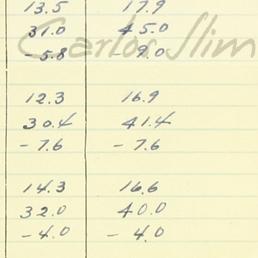 13.5 17.9
31.0 45.0
Carlos Slim
- 5.8 - 9.0
12.3 16.9
30.4 41.4
- 7.6 - 7.6
14.3 16.6
32.0 40.0
- 4.0 - 4.0